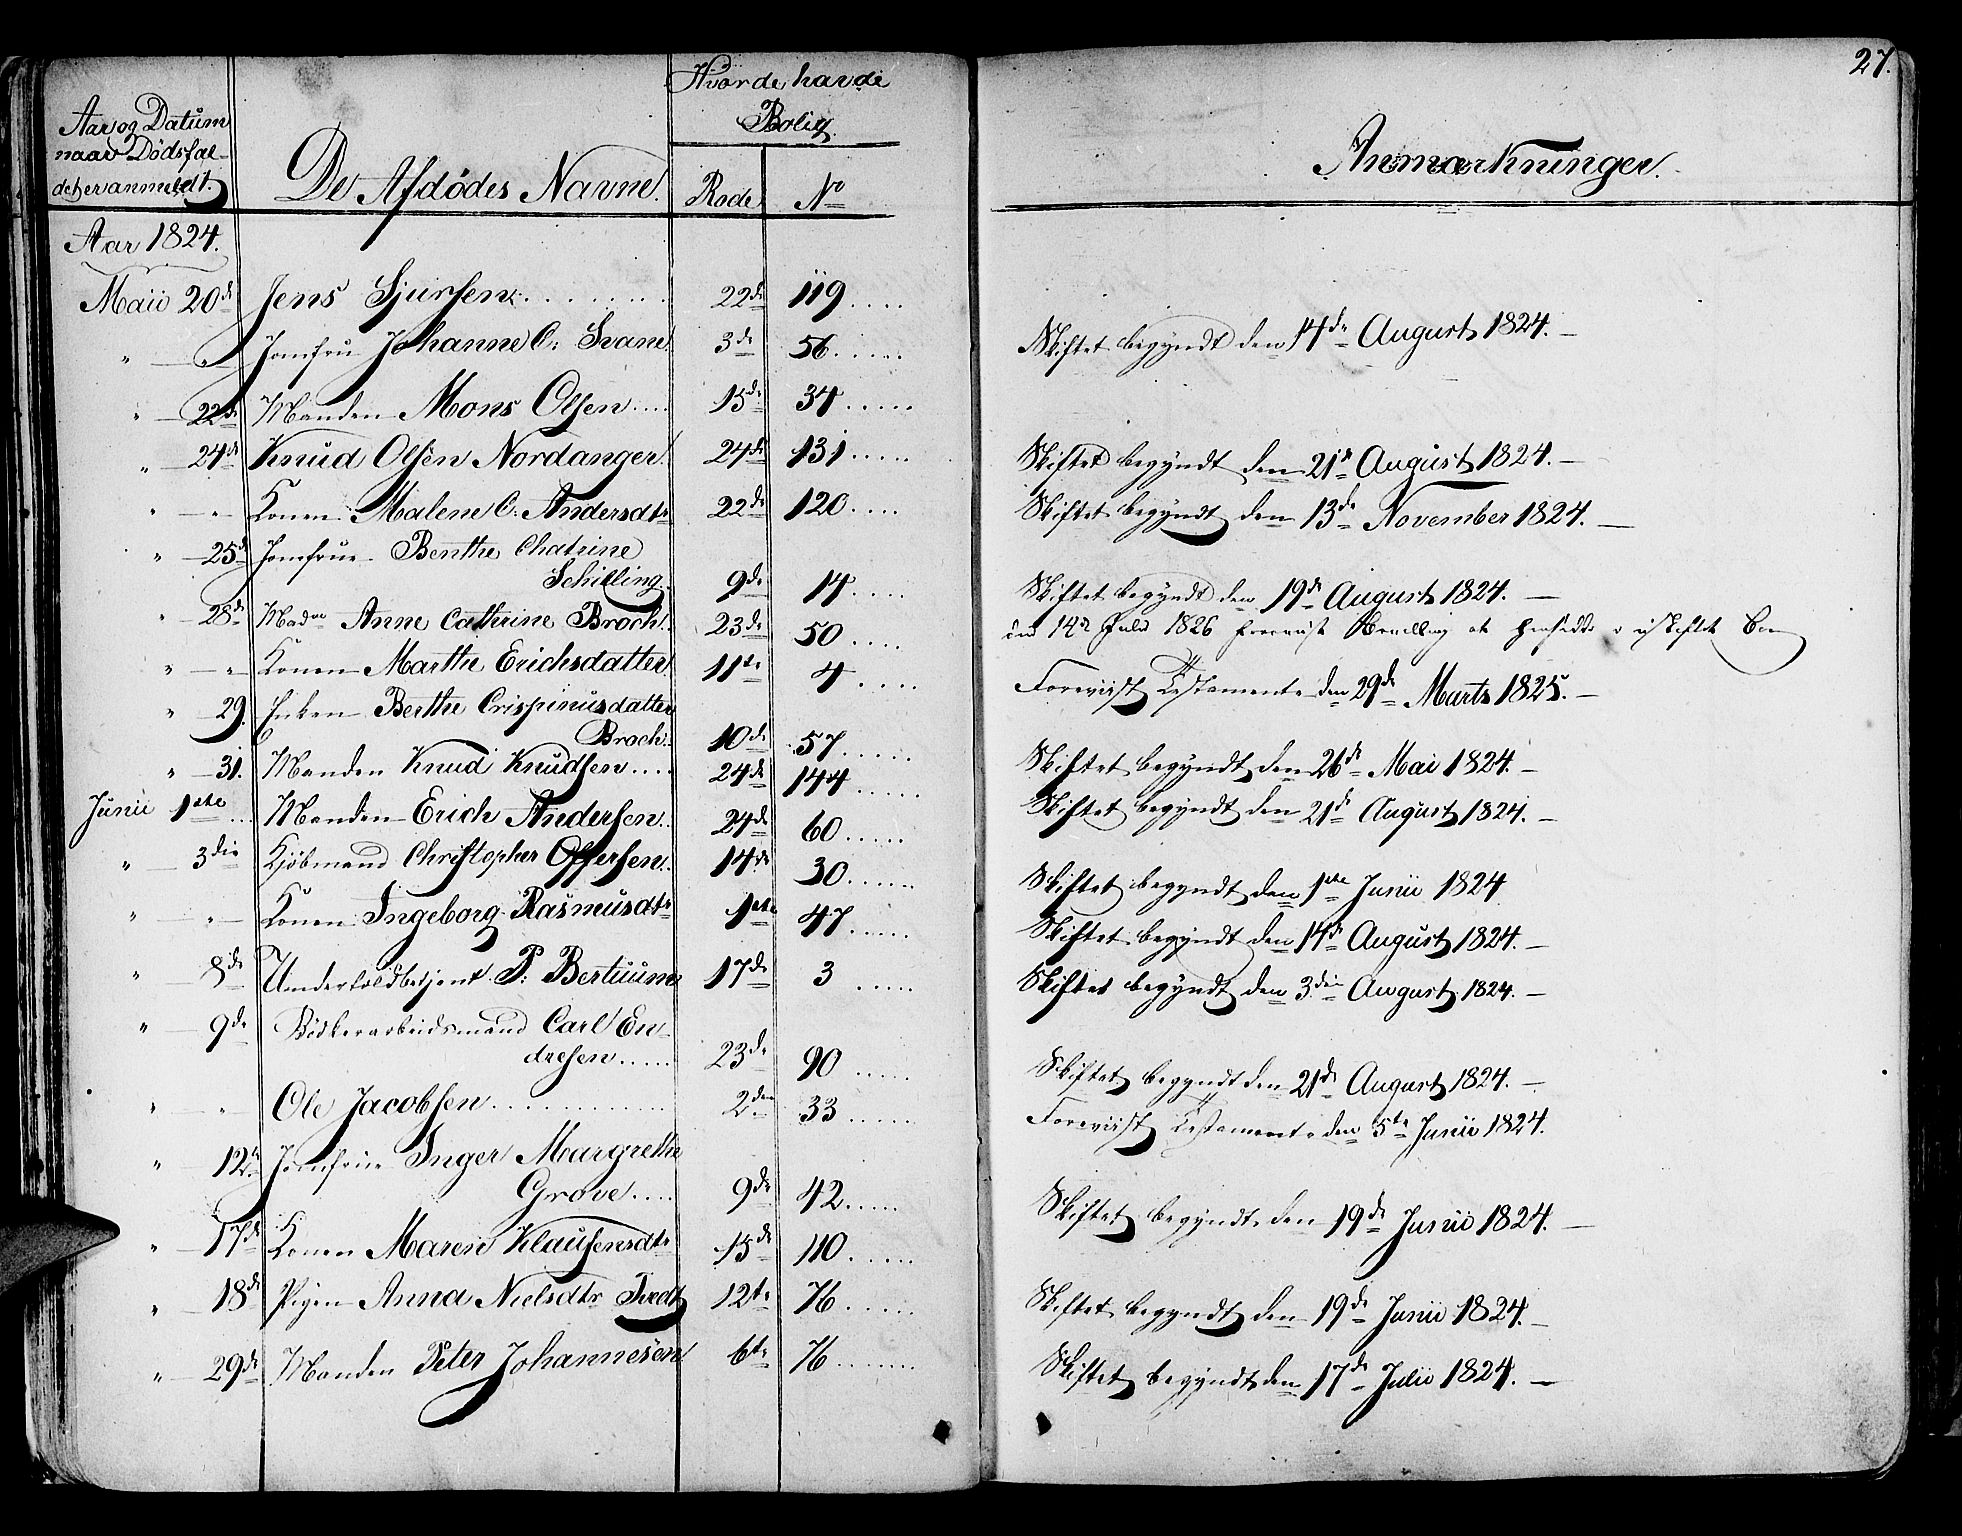 27.
Aar og Datum
naar Dødsfal-
det er anmeldt.
De Afdødes Navne.
Hvor de havde
Bolig.
Rode No
Anmærkninger.
Aar 1824.
Maii 20de Jens Sjursen ........ 22de 119 ....
" — " Jomfru Johanne C: Svane 3de 56 ..... Skiftet begyndt den 14de August 1824. —
" — 22de Manden Mons Olsen .... 15de 34 .....
" — 24de Knud Olsen Nordanger. 24de 131 ..... Skiftet begyndt den 21de August 1824. —
" — " Konen Malene C: Andersdtr 22de 120 .... Skiftet begyndt den 13de November 1824. —
" — 25de Jomfrue Benthe Chatrine
Schilling. 9de 14 .... Skiftet begyndt den 19de August 1824. —
" — 28de Made Anne Cathrine Broch. 23de 50 .... den 14de Juli 1826 Bevilling at hensidde i uskiftet Bo
" — " Konen Marthe Erichsdatter 11te 4 .... Foreviist Testamente den 29de Marts 1825. —
" — 29. Enken Berthe Crispinusdatter
Broch. 10de 57 ..... Skiftet begyndt den 26de Mai 1824. —
" — 31. Manden Knud Knudsen .... 24de 144 ..... Skiftet begyndt den 21de August 1824. —
Junii 1ste Manden Erich Andersen. 24de 60 .....
" — 3die Kjøbmand Christopher Offersen. 14de 30 ..... Skiftet begyndt den 1ste Junii 1824
" — " Konen Ingeborg Rasmusdtr 1ste 47 ..... Skiftet begyndt den 14de August 1824. —
" — 8de Undertoldbetjent P: Bertuum 17de 3 ..... Skiftet begyndt den 3die August 1824. —
" — 9de Bødkerarbeidsmand Carl En-
dresen ...... 23de 90 ..... Skiftet begyndt den 21de August 1824. —
" — " Ole Jacobsen ............. 2den 33 ..... Foreviist Testamente den 5te Junii 1824.
" — 12te Jomfrue Inger Margrethe
Grove .... 9de 42 ..... Skiftet begyndt den 19de Junii 1824. —
" — 17de Konen Maren Klausensdtr 15de 110 .....
" — 18de Pigen Anna Nielsdtr Tvedt 12te 76 ..... Skiftet begyndt den 19de Junii 1824. —
" — 29de Manden Peter Johannesen 6te 76 ....... Skiftet begyndt den 17de Julii 1824. —